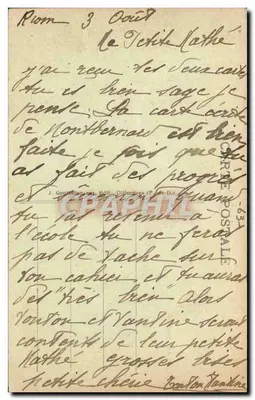 Riom 3 Août
Ma Petite Mathé
j'ai reçu tes deux cartes
tu es bien sage je
pense La carte écrite
de Montbernard est bien
faite je vois que tu
as fait des progrès
et quand
tu
l'école tu ne feras
pas de tache sur
ton cahier et tu auras
des "très bien" Alors
tonton et Tantine seront
contents de leur petite
Mathé grosses bises
petite chérie Tonton Tantine
CARTE POSTALE
CPARAMA